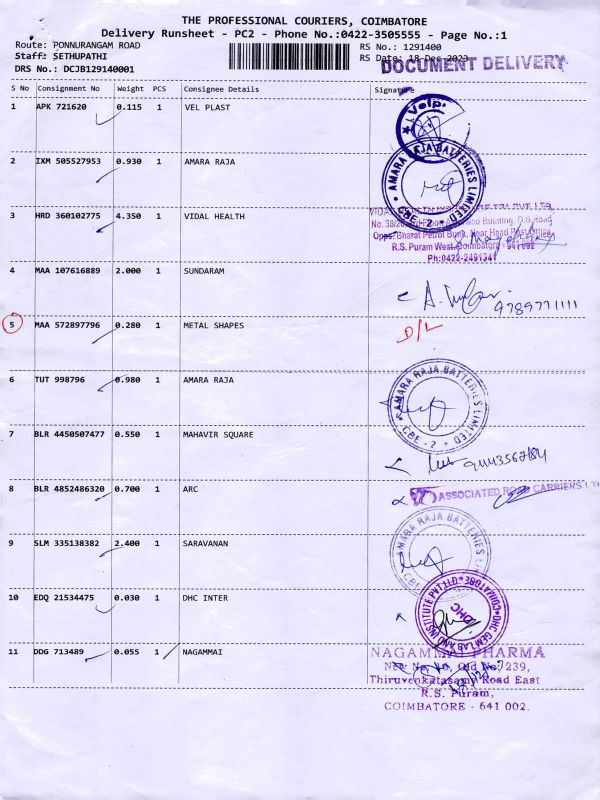 THE PROFESSIONAL COURIERS, COIMBATORE
Delivery Runsheet - PC2 - Phone No.:0422-3505555 - Page No.:1
Route: PONNURANGAM ROAD
RS No.: 1291400
Staff: SETHUPATHI
RS Date: 18-Dec-2023
DOCUMENT DELIVERY
DRS No.: DCJB129140001
S No Consignment No Weight PCS Consignee Details Signature
1 APK 721620 0.115 1 VEL PLAST
Volp
2 IXM 505527953 0.930 1 AMARA RAJA
AMARA RAJA BATTERIES LIMITED
CBE - 2
3 HRD 360102775 4.350 1 VIDAL HEALTH
Opp. Bharat Petrol Bunk, Near Head Post Office,
R.S. Puram West, Coimbatore - 641 002
Ph:0422-2491341
4 MAA 107616889 2.000 1 SUNDARAM
9789771111
5 MAA 572897796 0.280 1 METAL SHAPES
D/L
6 TUT 998796 0.980 1 AMARA RAJA
AMARA RAJA BATTERIES LIMITED
CBE - 2
7 BLR 4450507477 0.550 1 MAHAVIR SQUARE
8 BLR 4852486320 0.700 1 ARC
ASSOCIATED ROAD CARRIERS LTD
9 SLM 335138382 2.400 1 SARAVANAN
AMARA RAJA BATTERIES
10 EDQ 21534475 0.030 1 DHC INTER
DHC GEM LAB AND INSTITUTE PVT LTD
COIMBATORE
DHC
11 DDG 713489 0.055 1 NAGAMMAI
NAGAMMAI PHARMA
Old No. 239,
Thiruvenkatasamy Road East
R.S. Puram,
COIMBATORE - 641 002.